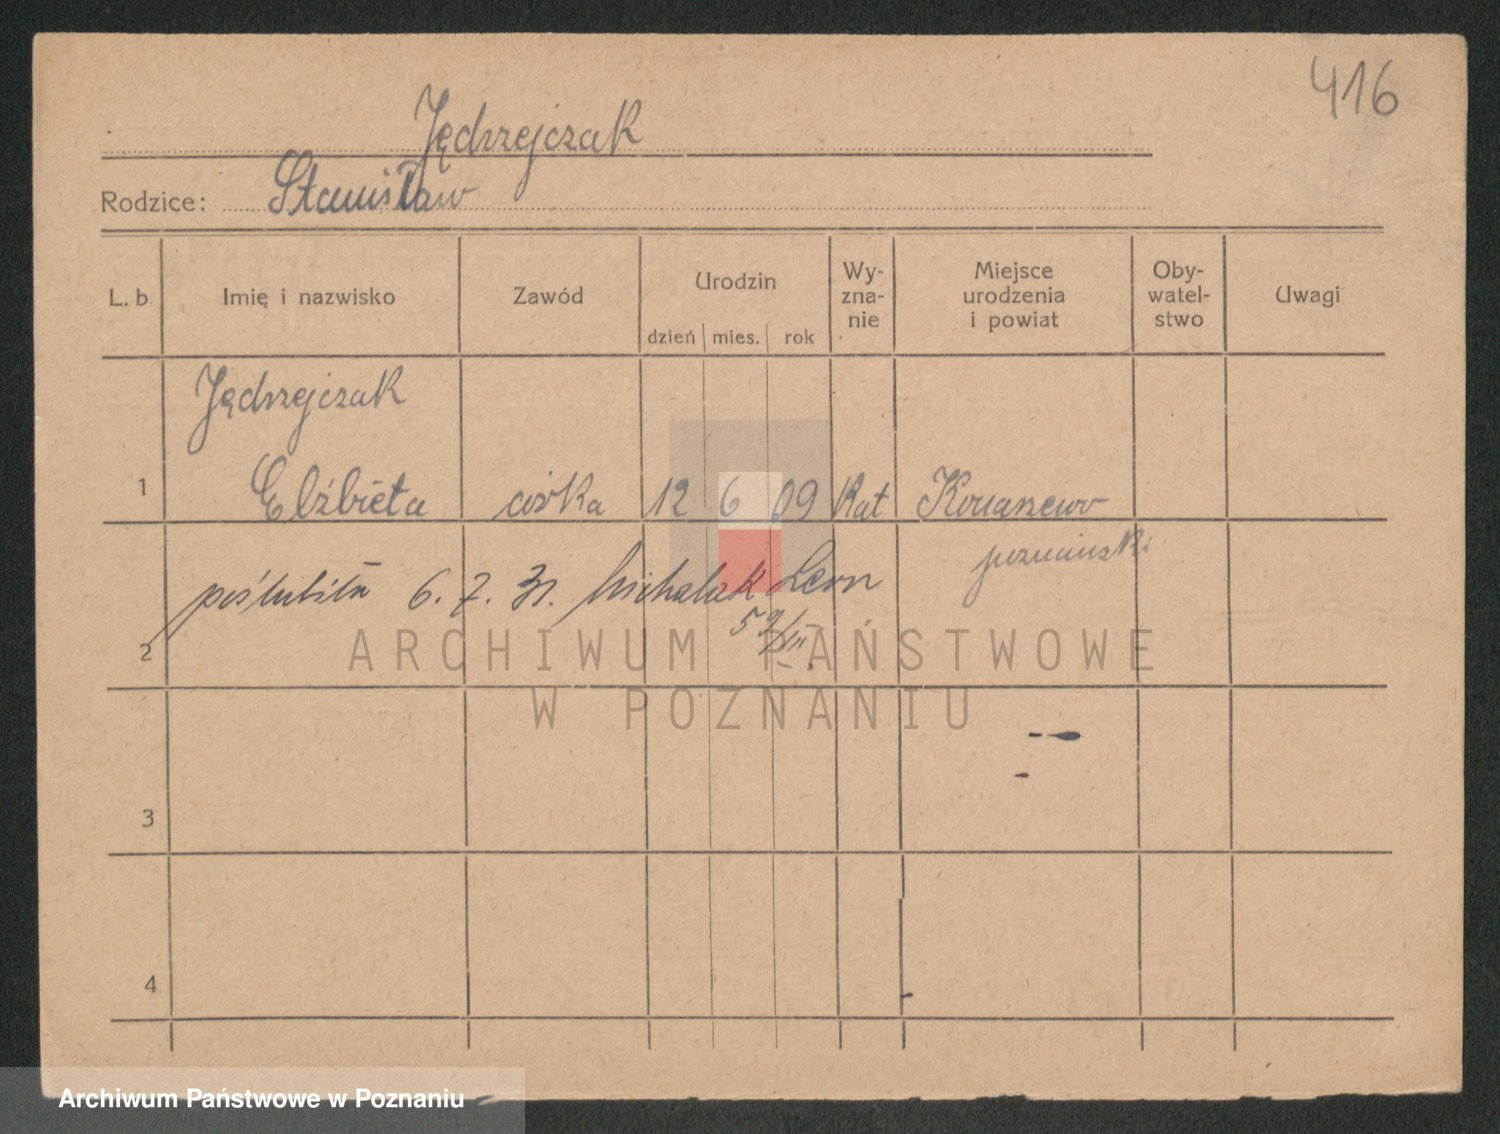 416
Jędrzejczak
Rodzice: Stanisław
L. b. Imię i nazwisko Zawód Urodzin dzień mies. rok Wy- zna- nie Miejsce urodzenia i powiat Oby- watel- stwo Uwagi
Jędrzejczak
1 Elżbieta córka 12 6 09 Kat
poznański
poślubiła 6. 7. 31. Michalak Leon
2
ARCHIWUM PAŃSTWOWE
W POZNANIU
3
4
Archiwum Państwowe w Poznaniu